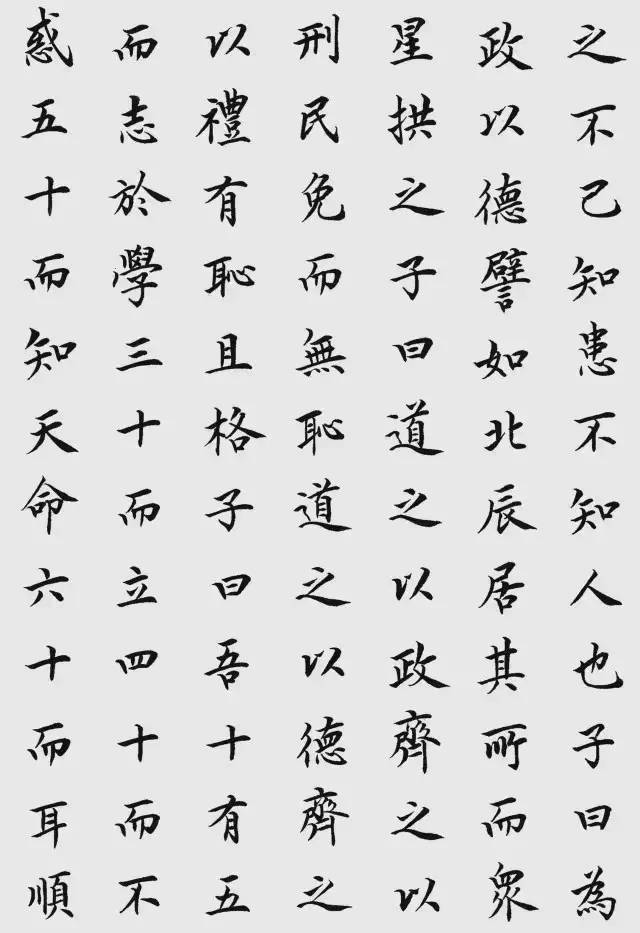 之不己知患不知人也子曰為
政以德譬如北辰居其所而眾
星拱之子曰道之以政齊之以
刑民免而無恥道之以德齊之
以禮有恥且格子曰吾十有五
而志於學三十而立四十而不
惑五十而知天命六十而耳順